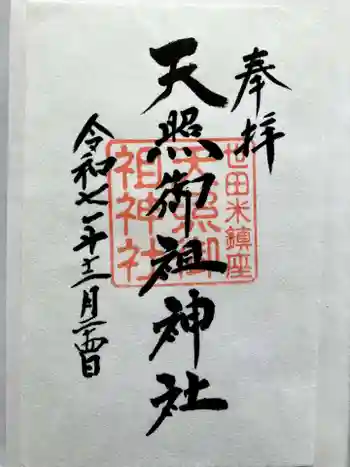 奉拝
天照御祖神社
令和七年十二月二十四日
世田米鎮座
天照御
祖神社